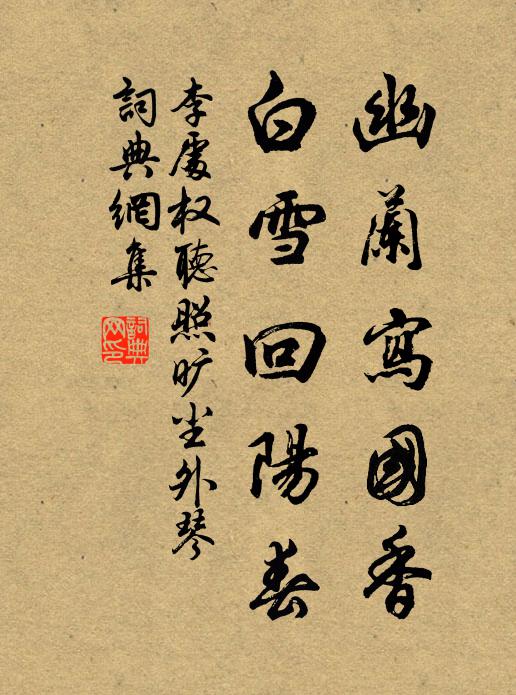 幽蘭寫國香
白雪回陽春
李處权聽照旷尘外琴
詞典網集
詞典网印